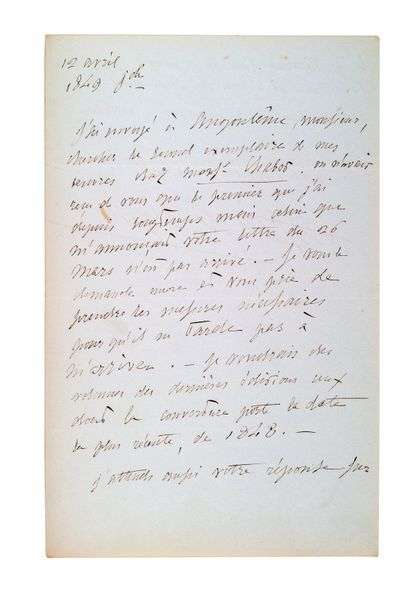 12 avril
1848 jdi
J'ai envoyé à Angoulême, monsieur,
chercher le second exemplaire de mes
œuvres chez monsr Chabot. on n'avait
reçu de vous que le premier que j'ai
depuis longtemps mais celui que
m'annonçait votre lettre du 26
mars n'est pas arrivé. – Je vous le
demande encore et vous prie de
prendre les mesures nécessaires
pour qu'il ne tarde pas à
m'arriver. – Je voudrais des
volumes des dernières éditions ceux
dont la couverture porte la date
la plus récente, de 1848. –
j'attends aussi votre réponse sur